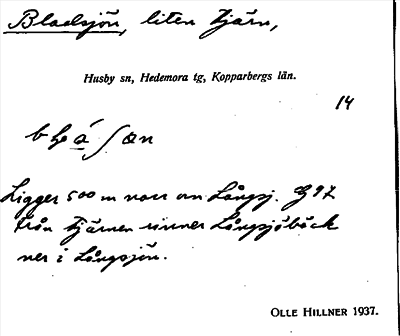 Bladsjön, liten tjärn,
Husby sn, Hedemora tg, Kopparbergs län.
14
Ligger 500 m norr om Långsj. G 97
från tjärnen rinner Långsjöbäck
ner i Långsjön.
OLLE HILLNER 1937.